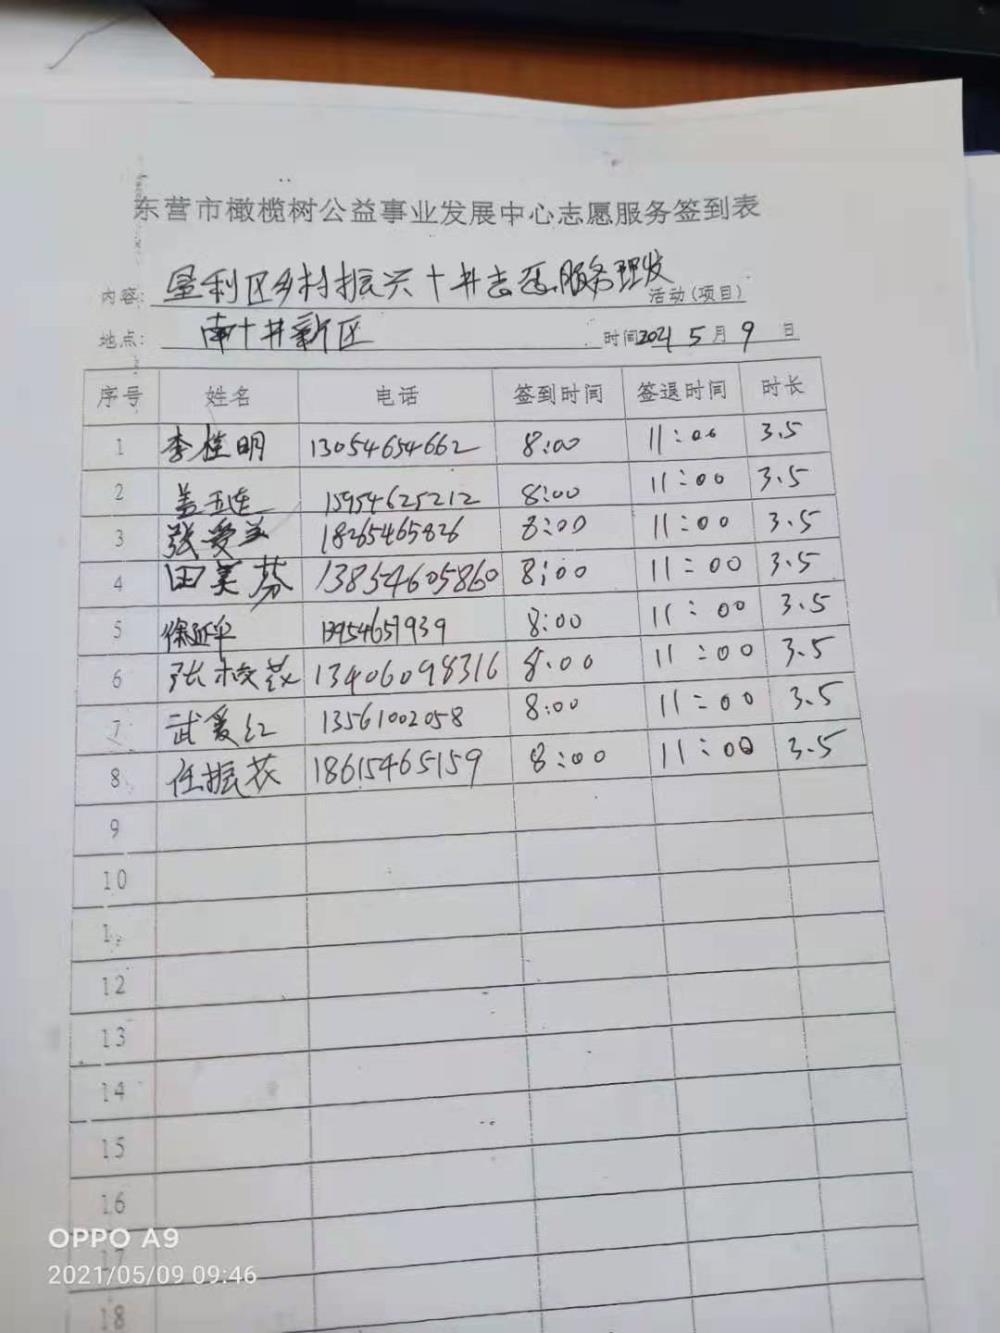 东营市橄榄树公益事业发展中心志愿服务签到表
内容: 垦利区乡村振兴十井志愿服务理发 活动(项目)
地点: 南十井新区 时间2021 5 月 9 日
序号 姓名 电话 签到时间 签退时间 时长
1 李桂明 13054654662 8:00 11:00 3.5
2 盖玉连 15954625212 8:00 11:00 3.5
3 张爱兰 18265465826 8:00 11:00 3.5
4 田美芬 13854605860 8:00 11:00 3.5
5 徐延华 13954657939 8:00 11:00 3.5
6 张梅花 13406098316 8:00 11:00 3.5
7 武爱红 13561002058 8:00 11:00 3.5
8 任振花 18615465159 8:00 11:00 3.5
9
10
12
13
14
15
16
17
18
OPPO A9
2021/05/09 09:46